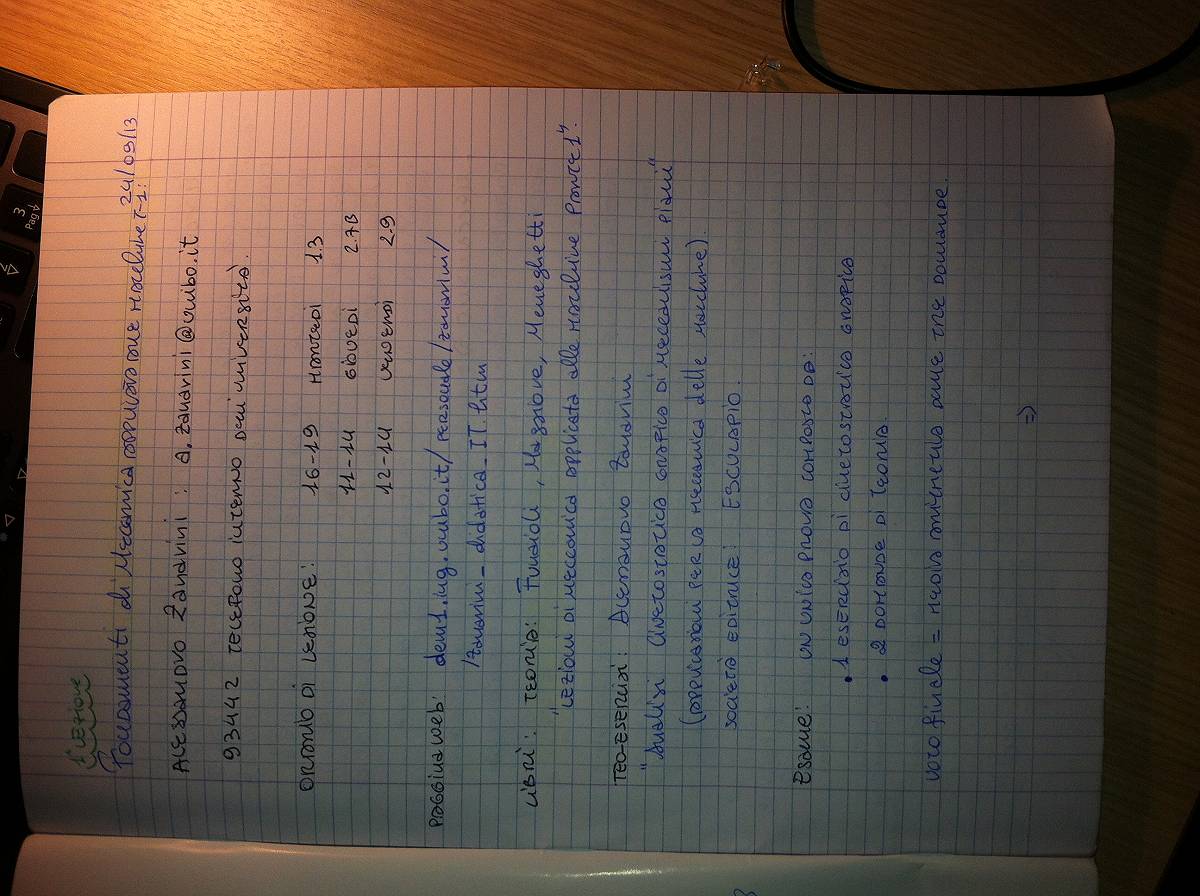 1° LEZIONE
24/09/13
Fondamenti di Meccanica applicata alle Macchine T-1:
ALESSANDRO Zanarini : a.zanarini@unibo.it
93442 TELEFONO interno dell'università.
ORARIO DI LEZIONE: 16-19 MARTEDI 1.3
11-14 GIOVEDI 2.7B
12-14 VENERDI 2.9
PAGGINA WEB: dem1.ing.unibo.it/personale/zanarini/
/zanarini_didattica_IT.htm
LIBRI: TEORIA: Funaioli, Maggiore, Meneghetti
"LEZIONI DI MECCANICA applicata alle MACCHINE PARTE 1".
TEO-ESERCIZI: ALESSANDRO Zanarini
"Analisi Cinetostatica GRAFICA DI MECCANISMI PIANI"
(APPLICAZIONI PER LA MECCANICA delle MACCHINE).
SOCIETÀ EDITRICE: ESCULAPIO.
ESAME: UN UNICA PROVA COMPOSTA DA:
• 1 ESERCIZIO DI CINETOSTATICA GRAFICA
• 2 DOMANDE DI TEORIA
VOTO finale = MEDIA ARITMETICA DELLE TRE DOMANDE.
=>
3
Pag